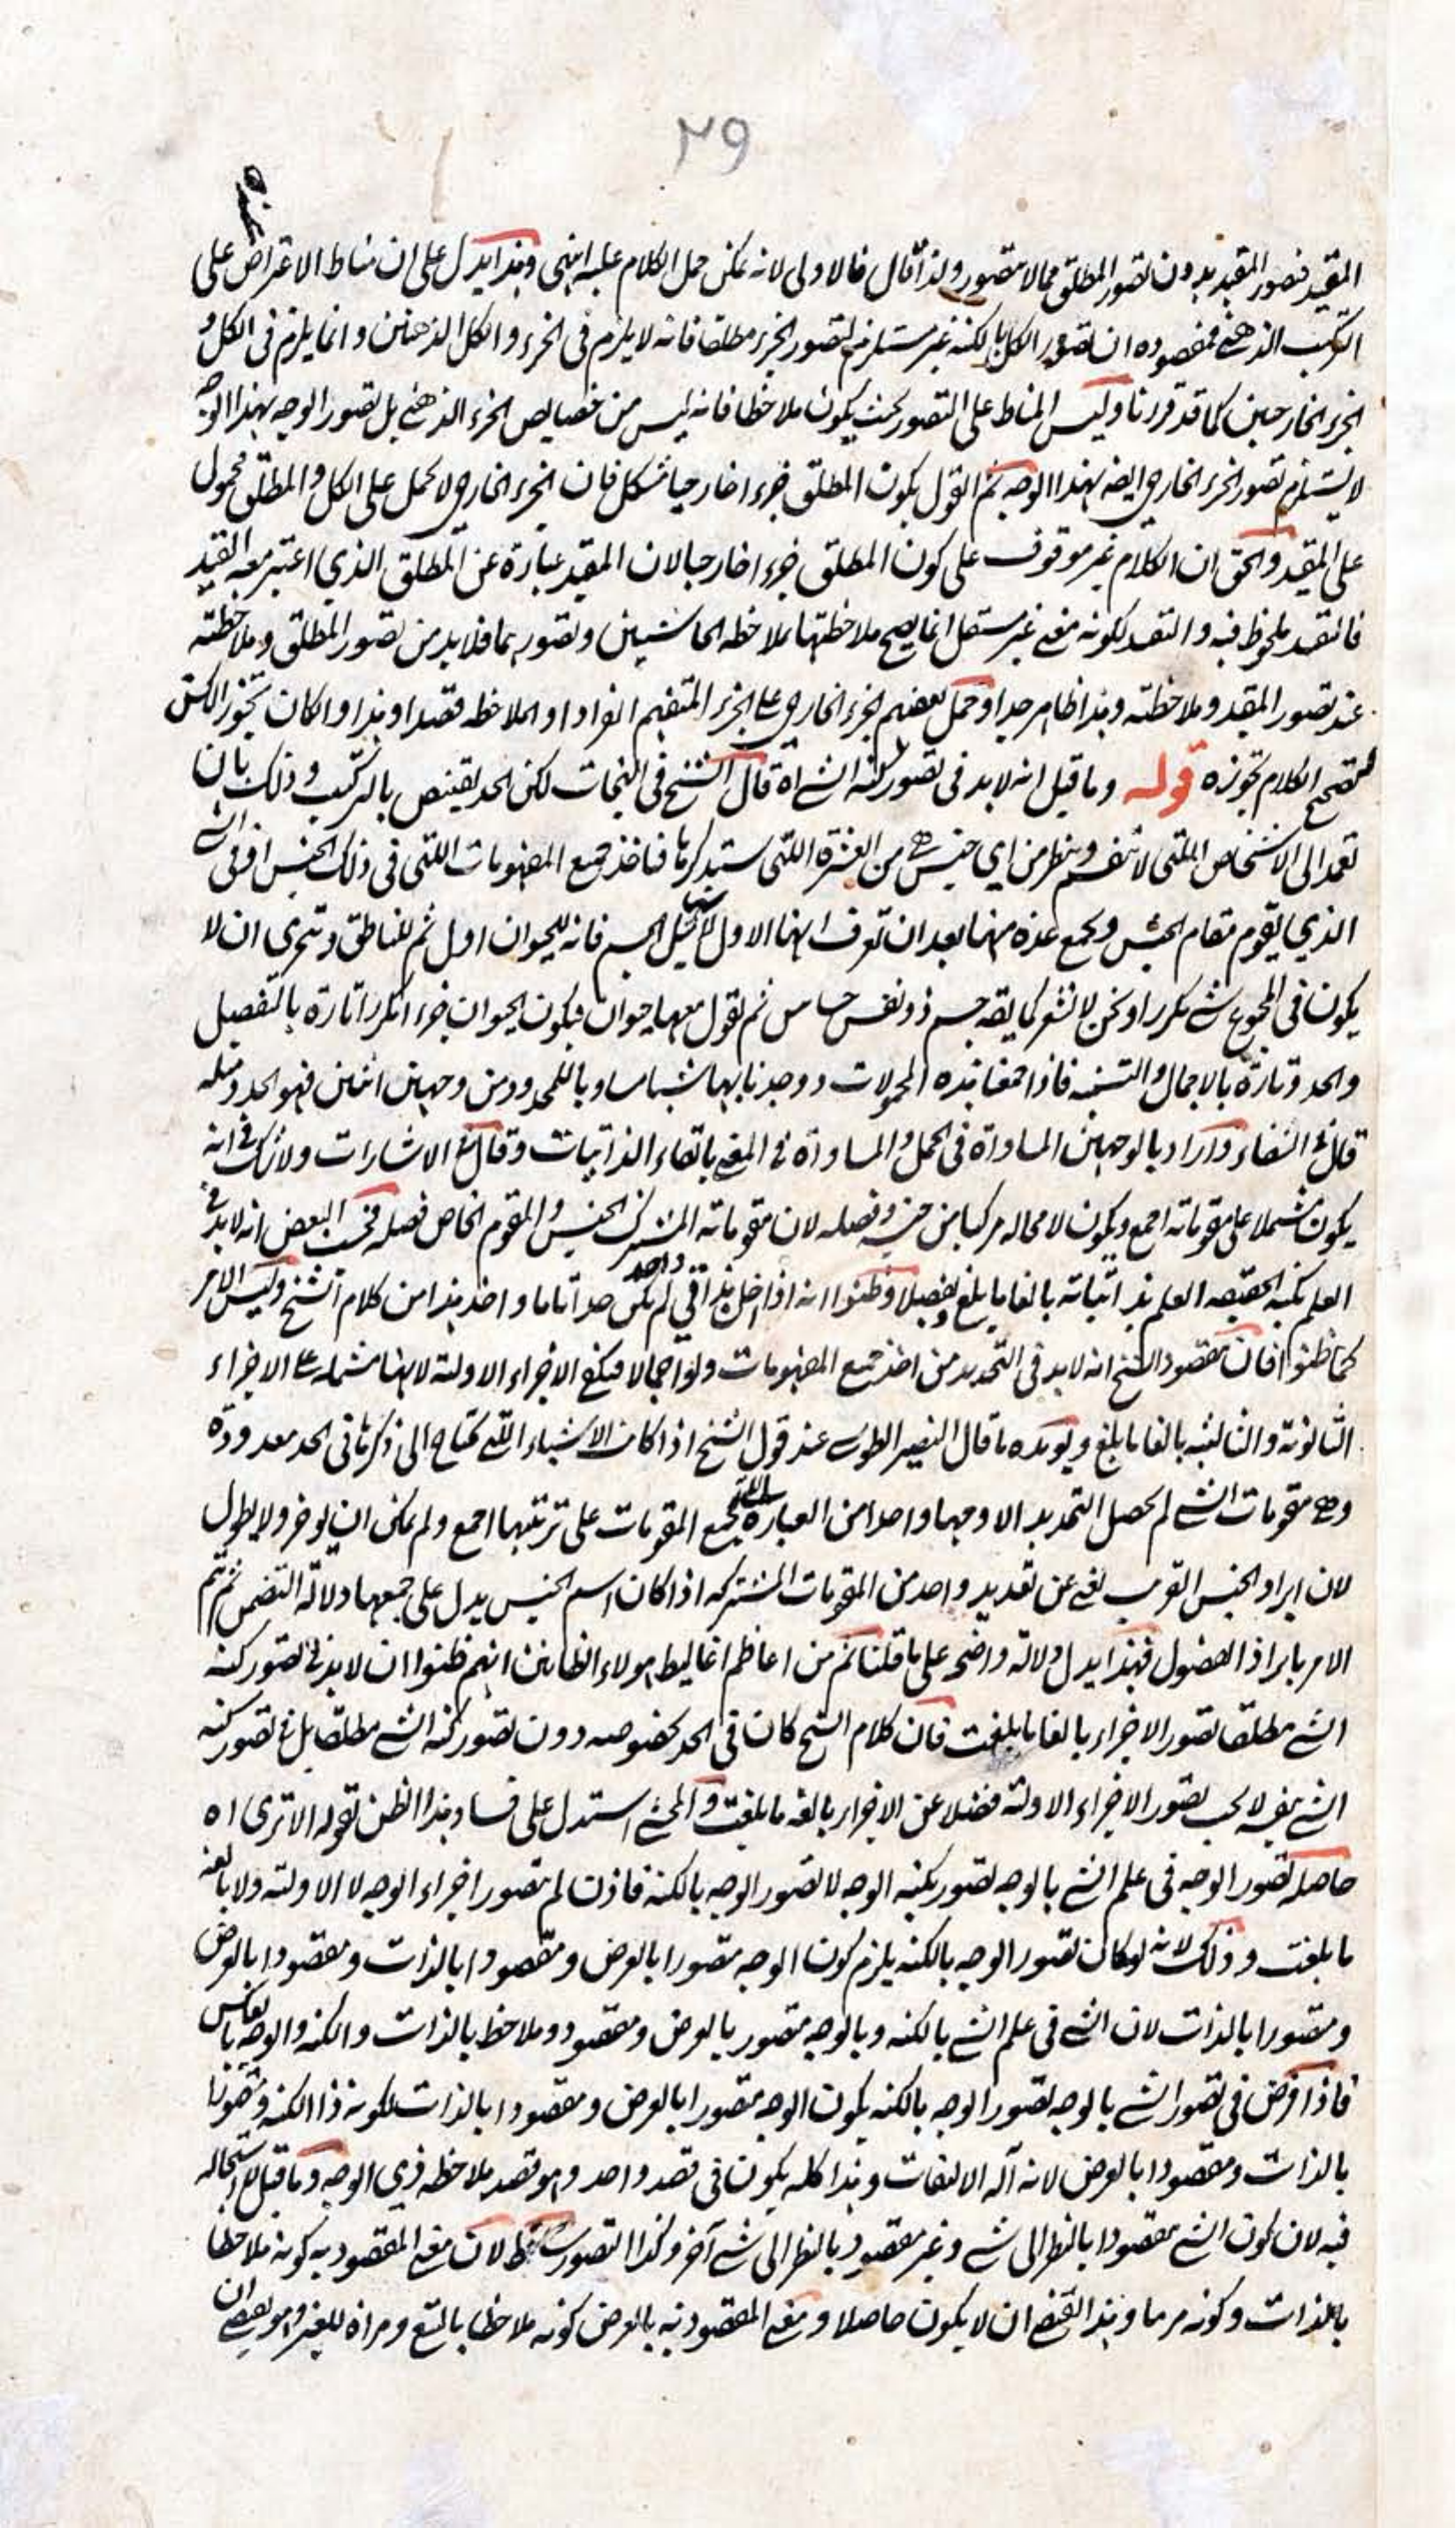 ٢٩
المقيد فتصور المقيد بدون تصور المطلق مما لا يتصور ولذا قال فالاولى لانه يمكن حمل الكلام عليه انتهى وهذا يدل على ان مناط الاعتراض على
التركيب الذهني فمقصوده ان تصور الكل بالكنه غير مستلزم لتصور الجزء مطلقا فانه لا يلزم في الجزء والكل الذهنين وانما يلزم في الكل و
الجزء الخارجين كما قد قررنا وليس المناط على التصور بحيث يكون ملاحظا فانه ليس من خصايص الجزء الذهني بل تصور الوجه بهذا الوجه
لا يستلزم تصور الجزء الخارجي ايضه بهذا الوجه ثم القول بكون المطلق جزءا خارجيا مشكل فان الجزء الخارجي لا يحمل على الكل والمطلق محمول
على المقيد والحق ان الكلام غير موقوف على كون المطلق جزءا خارجيا لان المقيد عبارة عن المطلق الذي اعتبر معه القيد
فالتقيد ملحوظ فيه والتقيد لكونه معنى غير مستقل انما يصح ملاحظتها بملاحظة الحاشيتين وتصورهما فلا بد من تصور المطلق وملاحظته
عند تصور المقيد وملاحظته وهذا ظاهر جدا وحمل بعضهم الجزء الخارجي على الجزء المتفهم انفرادا والملاحظة قصدا وهذا وان كان
لتصحيح الكلام تجوزه قوله وما قيل انه لا بد في تصور كنه الشئ اه قال الشيخ في النجات لكن الحد يقتنص بالتركيب وذلك بان
تعمد الى الاشخاص التي لا تنقسم وينظر من اي جنس هي من العشرة اللتي ستذكرها فناخذ جميع المفهومات اللتي في ذلك الجنس او في الشئ
الذي يقوم مقام الجنس ويجمع عدة منها بعد ان تعرف انها الاول مثل الجسم فانه للحيوان اول ثم للناطق ويتحرى ان لا
يكون في المجموع شئ مكررا ونحن لا نشعر كما يقه جسم ذو نفس حساس ثم نقول معها حيوان فيكون الحيوان جزءا تكرر تارة بالتفصيل
والحد وتارة بالاجمال والتسمية فاذا جمعنا هذه المحمولات ووجدنا بها شيئا مساويا للمحدود من وجهين اثنين فهو الحد ومثله
قال في الشفاء واراد بالوجهين المساواة في الحمل والمساواة في المعنى باتقاء الذاتيات وقال في الاشارات ولا شك في انه
يكون مشتملا على مقوماته اجمع ويكون لا محالة مركبا من جنسه وفصله لان مقوماته المشتركة الجنس والمقوم الخاص فصله فحسب البعض انه لا بد في
العلم بكنه الحقيقه العلم بذاتياته بالغا ما بلغ تفصيلا وظنوا انه اذا اخل بذاتي واحد لم يكن حدا تاما واخذ هذا من كلام الشيخ وليس الامر
كما ظنوا فان مقصود الشيخ انه لا بد في التحديد من اخذ جميع المفهومات ولو اجمالا فيكفي الاجزاء الاولية لانها مشتملة على الاجزاء
الثانوية والثالثيه بالغا ما بلغ ويويده ما قال النصير الطوسي عند قول الشيخ اذا كانت الاشياء اللتي تحتاج الى ذكرها في الحد معدودة
وهي مقومات الشئ لم يحصل التحديد الا وجها واحدا من العبارة اللتي تجمع المقومات على ترتيبها اجمع ولم يمكن ان يوجز ولا يطول
لان ايراد الجنس القريب يغني عن تعديد واحد من المقومات المشتركة اذا كان اسم الجنس يدل على جميعها دلالة التضمن ثم تيم
الامر بايراد الفصول فهذا يدل دلالة واضحة على ما قلنا ثم من اعاظم اغاليط هولاء الظانين انهم ظنوا ان لا بد في تصور كنه
الشئ مطلقا تصور الاجزاء بالغا ما بلغت فان كلام الشيخ كان في الحد بخصوصه دون تصور كنه الشئ مطلقا بل في تصور كنه
الشئ بنفسه لا يجب تصور الاجزاء الاولية فضلا عن الاجزاء بالغه ما بلغت والمحشي استدل على فساد هذا الظن بقوله الا ترى اه
حاصله تصور الوجه في علم الشئ بالوجه تصور بكنه الوجه لا تصور الوجه بالكنه فاذن لم يتصور اجزاء الوجه لا الاولية ولا بالغه
ما بلغت وذلك لانه لو كان تصور الوجه بالكنه يلزم كون الوجه متصورا بالعرض ومقصودا بالذات ومقصودا بالعرض
ومتصورا بالذات لان الشئ في علم الشئ بالكنه وبالوجه متصور بالعرض ومقصود وملاحظ بالذات والكنه والوجه بالعكس
فاذا فرض في تصور الشئ بالوجه تصور الوجه بالكنه يكون الوجه متصورا بالعرض ومقصودا بالذات لكونه ذا الكنه ومتصورا
بالذات ومقصودا بالعرض لانه آلة الالتفات وهذا كله يكون في قصد واحد وهو قصد ملاحظة ذي الوجه وما قيل لا استحالة
فيه لان كون الشئ مقصودا بالنظر الى شئ وغير مقصود بالنظر الى شئ آخر وكذا التصور ساقط لان معنى المقصوديه كونه ملاحظا
بالذات وكونه مرما وهذا يقتضي ان لا يكون حاصلا ومعنى المقصوديه بالعرض كونه ملاحظا بالتبع ومراة للغير وهو يقتضي ان